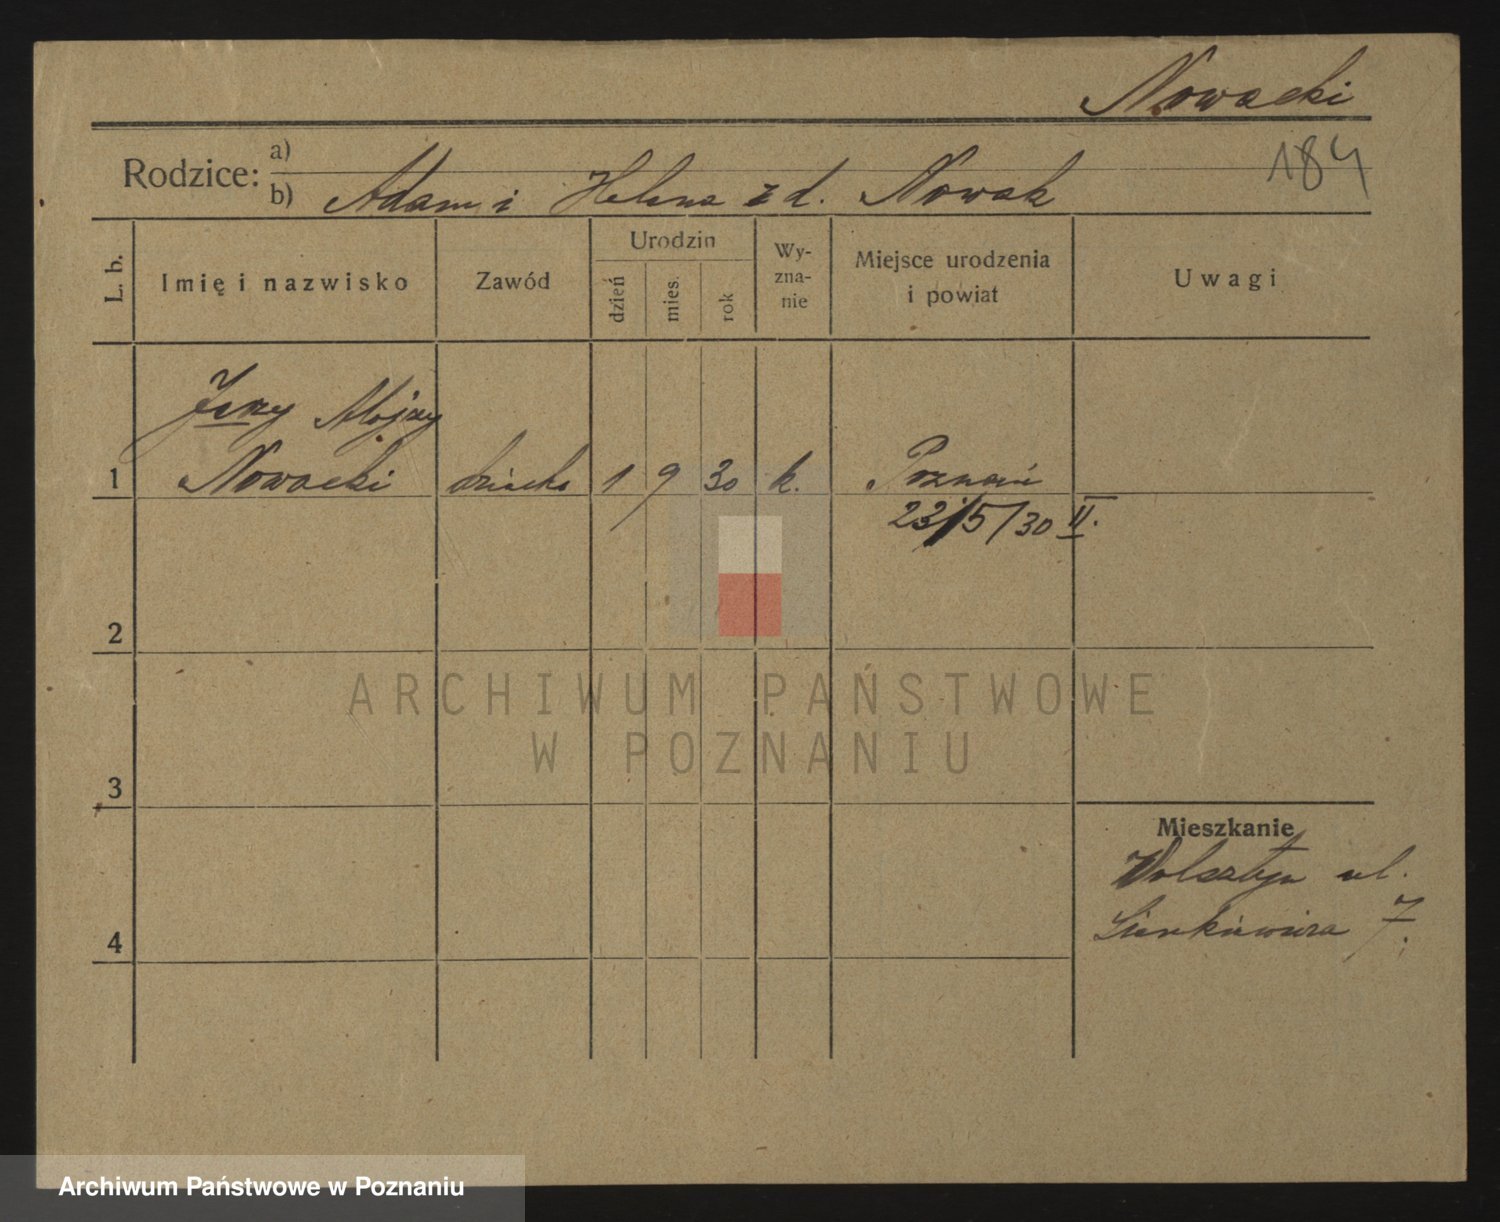 Nowacki
184
Rodzice: a)
b) Adam i Helena z d. Nowak
L. b.
Imię i nazwisko
Zawód
Urodzin
dzień
mies.
rok
Wy-
zna-
nie
Miejsce urodzenia
i powiat
Uwagi
Jerzy Alojzy
1 Nowacki dziecko 1 9 30 k. Poznań
23/5/30 II.
2
ARCHIWUM PAŃSTWOWE
W POZNANIU
3
Mieszkanie
Wolsztyn ul.
Sienkiewicza 7.
4
Archiwum Państwowe w Poznaniu